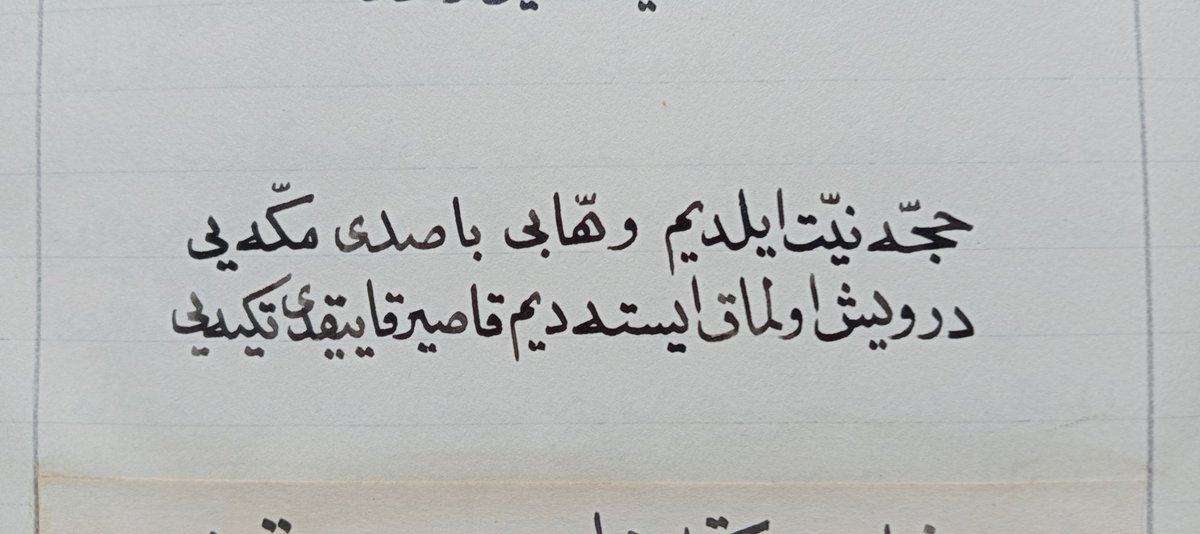 حجّه نیّت ایلدیم وهّابی باصدی مکّه یی
درویش اولماق ایسته دیم قاصیرقا ییقدی تکیه یی